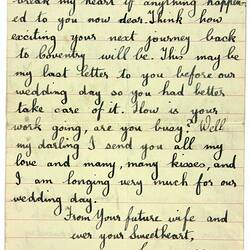 break my heart if anything happen-
ed to you now dear. Think how
exciting your next journey back
to Coventry will be. This may be
my last letter to you before our
wedding day so you had better
take care of it. How is your
work going, are you busy? Well
my darling I send you all my
love and many, many kisses, and
I am longing very much for our
wedding day.
From Your future wife and
ever your Sweetheart,